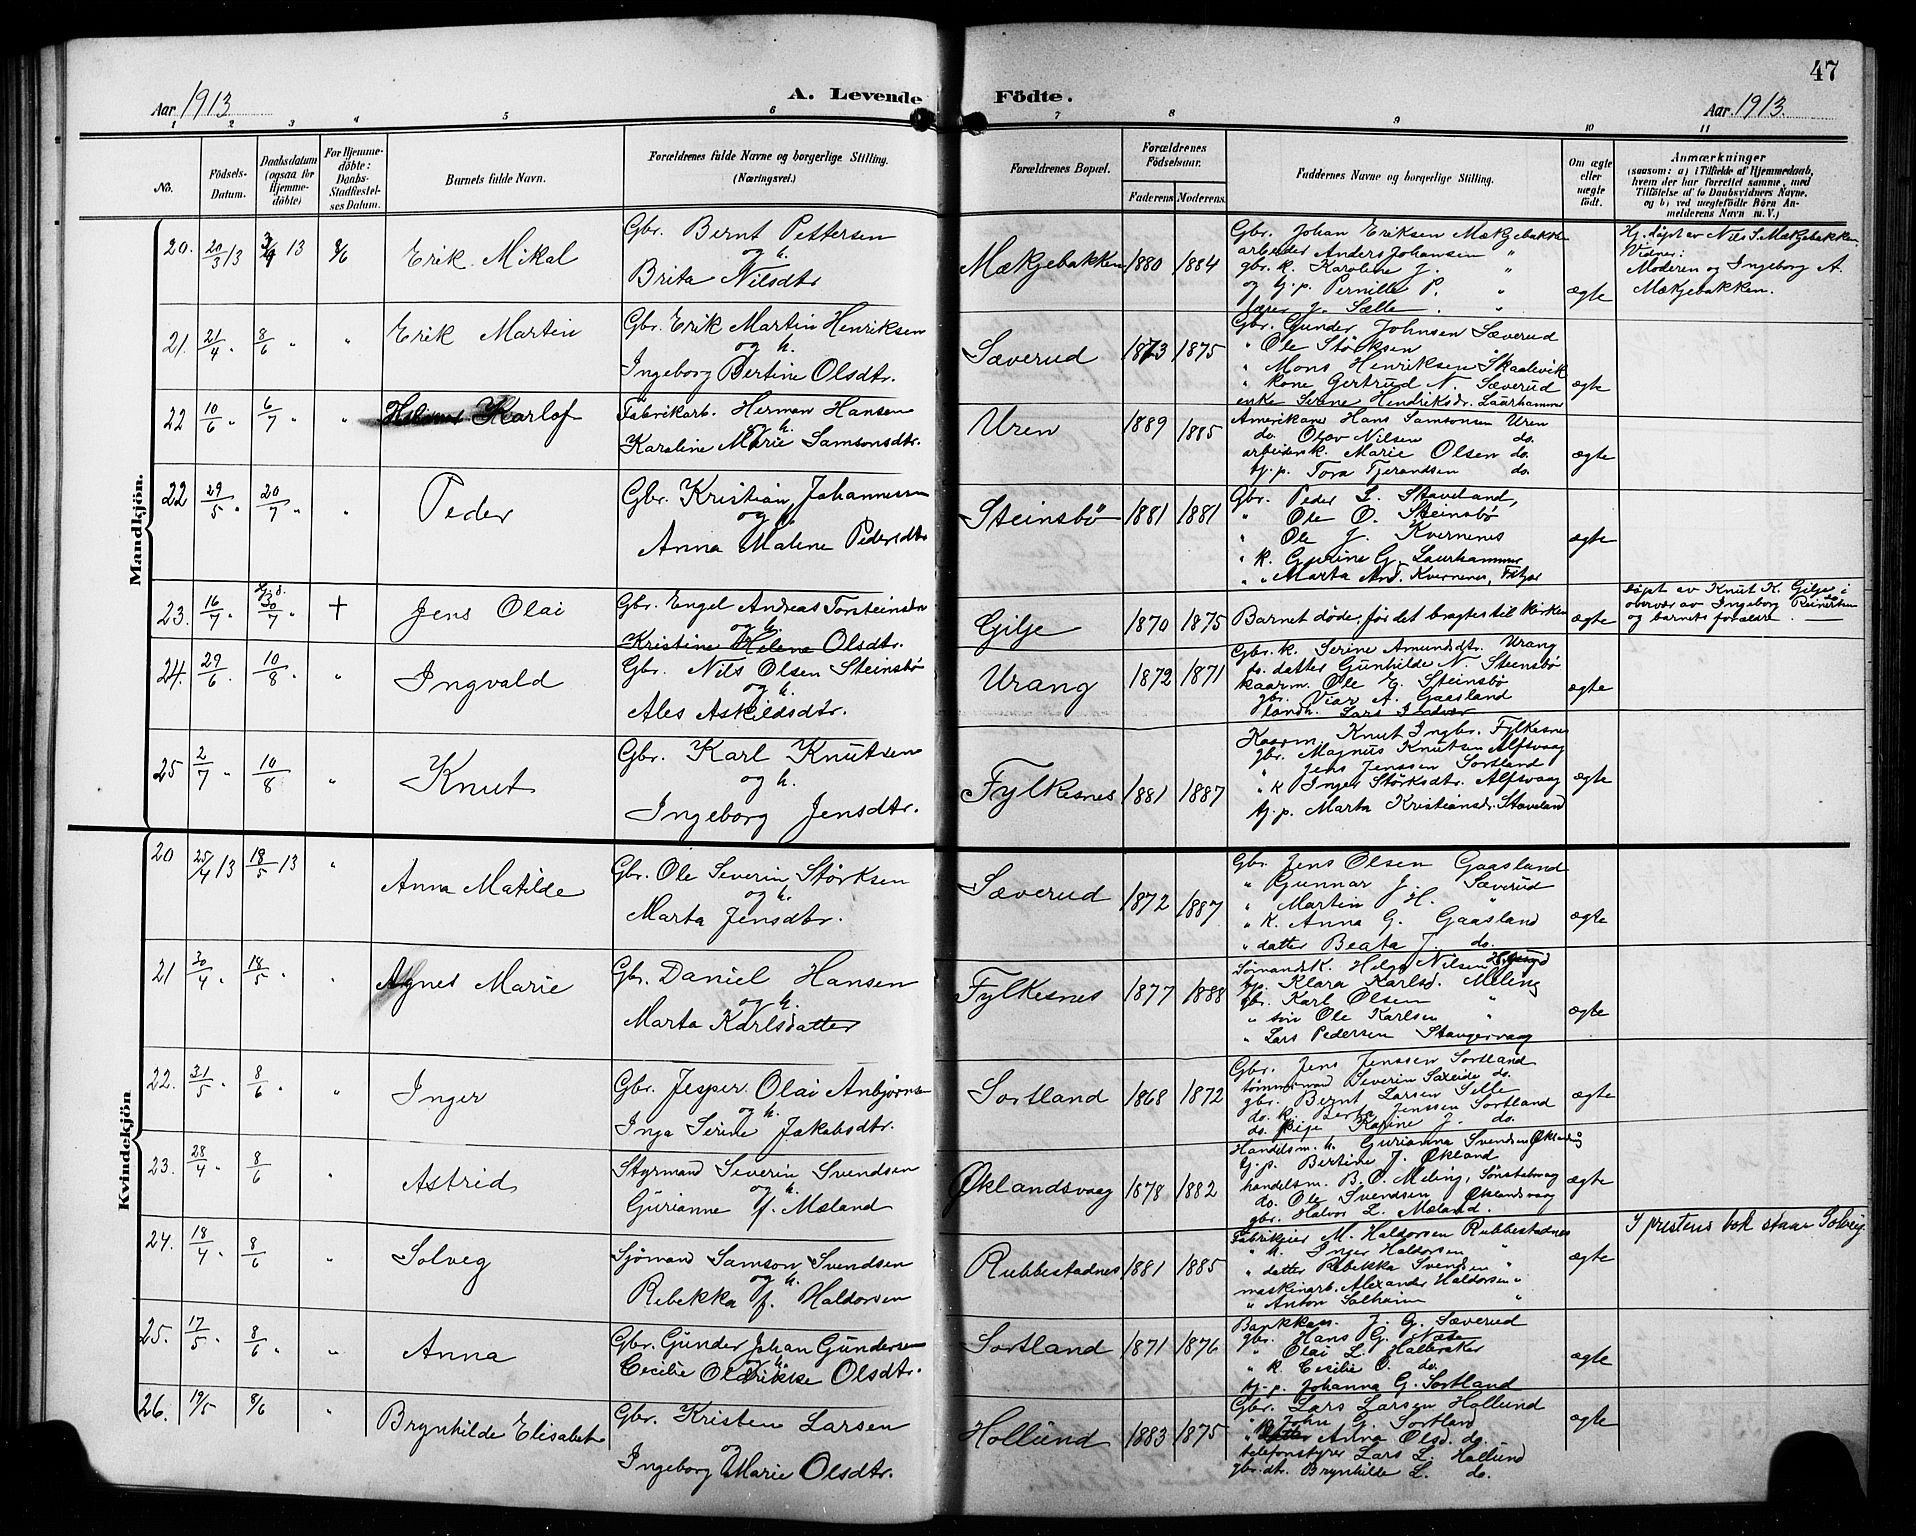 47
Aar 1913
A. Levende Födte.
Aar 1913.
1 2 3 4 5 6 7 8 9 10 11
No.
Födsels-Datum.
Daabsdatum (ogsaa for Hjemme-döbte)
For Hjemme-döbte: Daabs-Stadfæstel-ses Datum.
Barnets fulde Navn.
Forældrenes fulde Navne og borgerlige Stilling. (Næringsvei.)
Forældrenes Bopæl.
Forældrenes Födselsaar.
Faderens Moderens
Faddernes Navne og borgerlige Stilling.
Om ægte eller uægte födt.
Anmærkninger
(saasom: a) i Tilfælde af Hjemmedaab,
hvem der har forrettet samme, med
Tilföielse af to Daabsvidners Navne,
og b) ved uægtefödte Börn An-
melderens Navn m. V.)
Mandkjön.
20. 20/3 13 13 8/6 Erik Mikal
Gbr. Bernt Pettersen
og h.
Brita Nilsdtr
Mækjebakken 1880 1884
Gbr. Johan Eriksen Mækjebakken
arbeider Anders Johansen "
gbr. k. Karoline J. "
og tj.p. Pernille P. "
J. Sælle "
ægte
Hj. døpt av Nils S. Mækjebakken.
Vidner:
Moderen og Ingeborg A.
Mækjebakken.
21. 21/4 " 8/6 " " Erik Martin
Gbr. Erik Martin Henriksen
og h.
Ingeborg Bertine Olsdtr.
Sæverud 1873 1875
Gbr. Gunder Johnsen Sæverud
" Ole Störksen "
" Mons Henriksen Skaalevik
" kone Gertrud N. Sæverud
enke Serine Hendriksdr. Laurhammer
ægte
22 10/6 " 6/7 " " Karlof
Fabrikarb. Herman Hansen
og h.
Karoline Marie Samsonsdtr.
Uren 1889 1885
Amerikaner Hans Samsonsen Uren
do. Olav Nilsen do.
arbeidersk. Marie Olsen do.
tj.p. Tora Tjerandsen do.
ægte
22 29/5 " 20/7 " " Peder
Gbr. Kristian Johannessen
og h.
Anna Malene Pedersdtr
Steinsbö 1881 1881
Gbr. Peder L. Staveland,
" Ole O. Steinsbö
" Ole J. Kvernenes
" k. Gurine G. Laurhammer
" " Marta And. Kvernenes, Fitjar
ægte
23. 16/7 " Hj.d. 30/7 " + Jens Olai
Gbr. Engel Andreas Torsteinsen
og h.
Kristine Helene Olsdtr.
Gilje 1870 1875
Barnet døde, før det bragtes til kirken
ægte
døpt av Knut K. Gilje i
overvær av Ingeborg Reinertsen
og barnets forældre.
24. 29/6 " 10/8 " " Ingvald
Gbr. Nils Olsen Steinsbö
og h.
Ales Askildsdtr.
Urang 1872 1871
Gbr. k. Serine Amundsdtr. Urang
do. datter Gunhilde N. Steensbö
kaarm. Ole E. Steinsbö
gbr. Viar A. Gaasland
landh. Lars Indvær
ægte
25 2/7 " 10/8 " Knut
Gbr. Karl Knutsen
og h.
Ingeborg Jensdtr.
Fylkesnes 1881 1887
Kaarm. Knut Ingbr. Fylkesnes
gbr. Magnus Knutsen Alfsvaag
" Jens Jenssen Sortland
" k Inger Störksdtr. Alfsvaag
tj.p. Marta Kristiansdr. Staveland
ægte
Kvindekjön
20 25/4 13 18/5 13 " Anna Matilde
Gbr. Ole Severin Störksen
og h.
Marta Jensdtr.
Sæverud 1872 1887
Gbr. Jens Olsen Gaasland
" Gunnar J. Sæverud
" Martin H. "
" k. Anna G. Gaasland
" datter Beata J. do.
ægte
21 30/4 " 18/5 " " Agnes Marie
Gbr. Daniel Hansen
og h.
Marta Karlsdatter
Fylkesnes 1877 1888
Sømandsk. Helga Nilsen
tj.p. Klara Karlsd. Meling
gbr. Karl Olsen "
" søn Ole Karlsen "
" Lars Pedersen Stangervaag
ægte
22. 31/5 " 8/6 " " Inger
Gbr. Jesper Olai Anbjørnsen
og h.
Inga Serine Jakobsdtr.
Sortland 1868 1872
Gbr. Jens Jenssen Sortland
tømmermand Severin Saxeide do.
gbr. Bernt Larsen Selle
do. k. Berta Jenssen Sortland
do. pige Karine J. do.
ægte
23. 28/4 8/6 " Astrid
Styrmand Severin Svendsen
og h.
Gurianne f. Mæland
Øklandsvaag 1878 1882
Handelsm. h. Gurianna Svendsen Øklandsv
G.p. Bertine J. Økland
handelsm. B.O. Meling, Sønstabøvaag
do. Ole Svendsen Øklandsvaag
gbr. Halvor L. Mæland.
ægte
24. 18/4 8/6 " Solveg
Sjömand Samson Svendsen
og h.
Rebekka f. Haldorsen
Rubbestadnes 1881 1885
Fabrikeier M. Haldorsen Rubbestadnes
" h. Inger Haldorsen "
" datter Rebekka Svendsen "
maskinarb. Alexander Haldorsen "
" Anton Salheim "
ægte
I prestens bok staar Solveig.
25. 17/5 8/6 " " Anna
Gbr. Gunder Johan Gundersen
og h.
Cecilie Oldrikke Olsdtr.
Sortland 1871 1876
Bankkas. J. G. Sæverud
gbr. Hans G. Næse
" Olai L. Halleraker
" k. Cecilie O. do.
tj.p. Johanna G. Sortland
ægte
26. 19/5 8/6 " Brynhilde Elisabet
Gbr. Kristen Larsen
og
Ingeborg Marie Olsdtr.
Hollund 1883 1875
Gbr. Lars Larsen Hollund
" John G. Sortland
" Anna Olsd. do.
telefonstyrer Lars L. Hollund
gbr.dt. Brynhilde L. do.
ægte